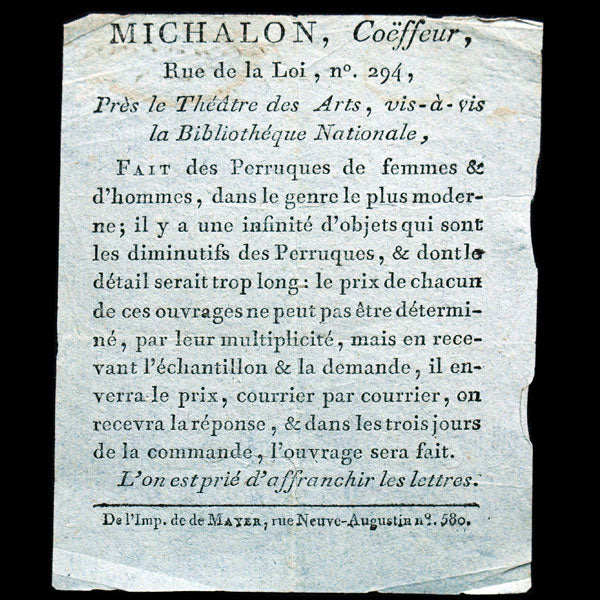 MICHALON, Coëffeur,
Rue de la Loi, nº. 294,
Près le Théâtre des Arts, vis-à-vis
la Bibliothéque Nationale,
FAIT des Perruques de femmes &
d'hommes, dans le genre le plus moder-
ne; il y a une infinité d'objets qui sont
les diminutifs des Perruques, & dont le
détail serait trop long: le prix de chacun
de ces ouvrages ne peut pas être détermi-
né, par leur multiplicité, mais en rece-
vant l'échantillon & la demande, il en-
verra le prix, courrier par courrier, on
recevra la réponse, & dans les trois jours
de la commande, l'ouvrage sera fait.
L'on est prié d'affranchir les lettres.
De l'Imp. de de MAYER, rue Neuve-Augustin nº. 580.